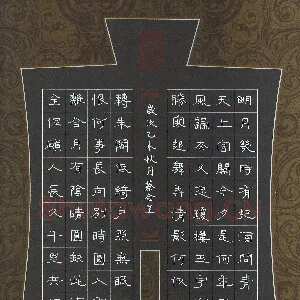 明月幾時有把酒問青
天上宮闕今夕是何年
風歸去又恐瓊樓玉宇
勝寒起舞弄清影何似
歲次乙未秋月蔡念
轉朱閣低綺戶照無眠
恨何事長向別時圓人
離合月有陰晴圓缺此
全但願人長久千里共